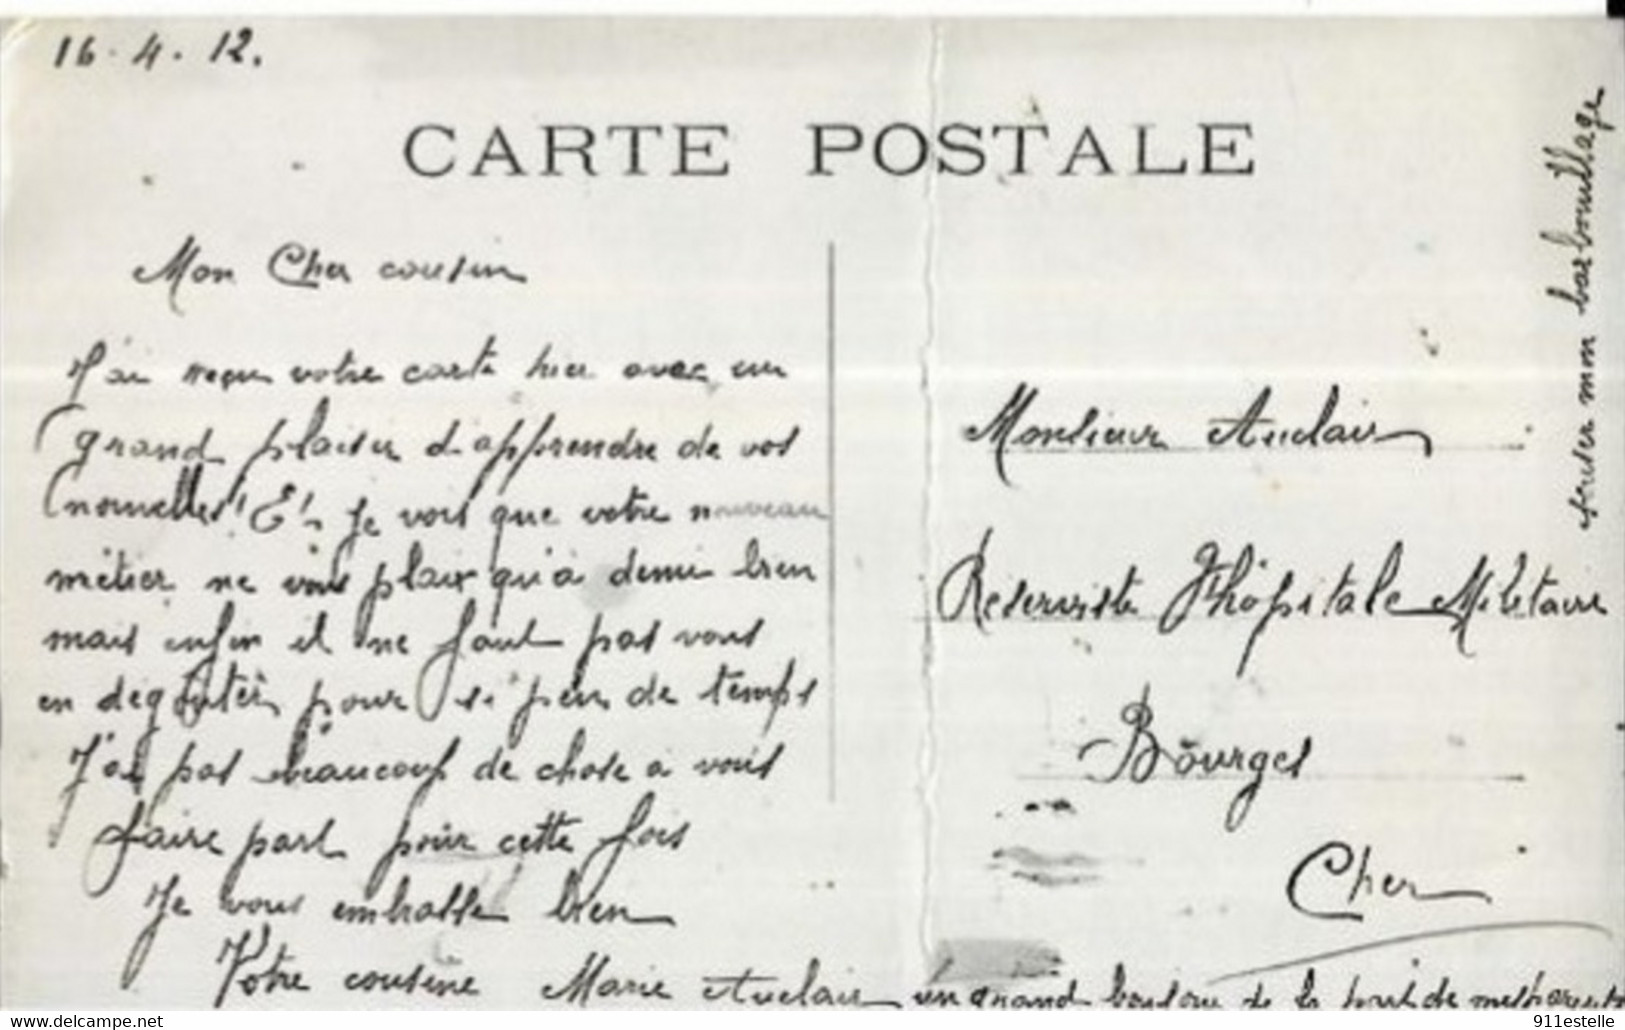 16.4.12.
CARTE POSTALE
Mon Cher cousin
J'ai reçu votre carte hier avec un
grand plaisir d'apprendre de vos
nouvelles! Et je vois que votre nouveau
métier ne vous plaix qu'à demi bien
mais enfin il ne faut pas vous
en dégoûter pour si peu de temps
J'ai pas beaucoup de chose a vous
faire part pour cette fois
Je vous embrasse bien
Votre cousine Marie Auclair un grand bonjour de la part de mes parents
Monsieur Auclair
Réserviste Hhôpitale Militaire
Bourges
Cher
mon barbouillage
http://www.delcampe.net
911estelle